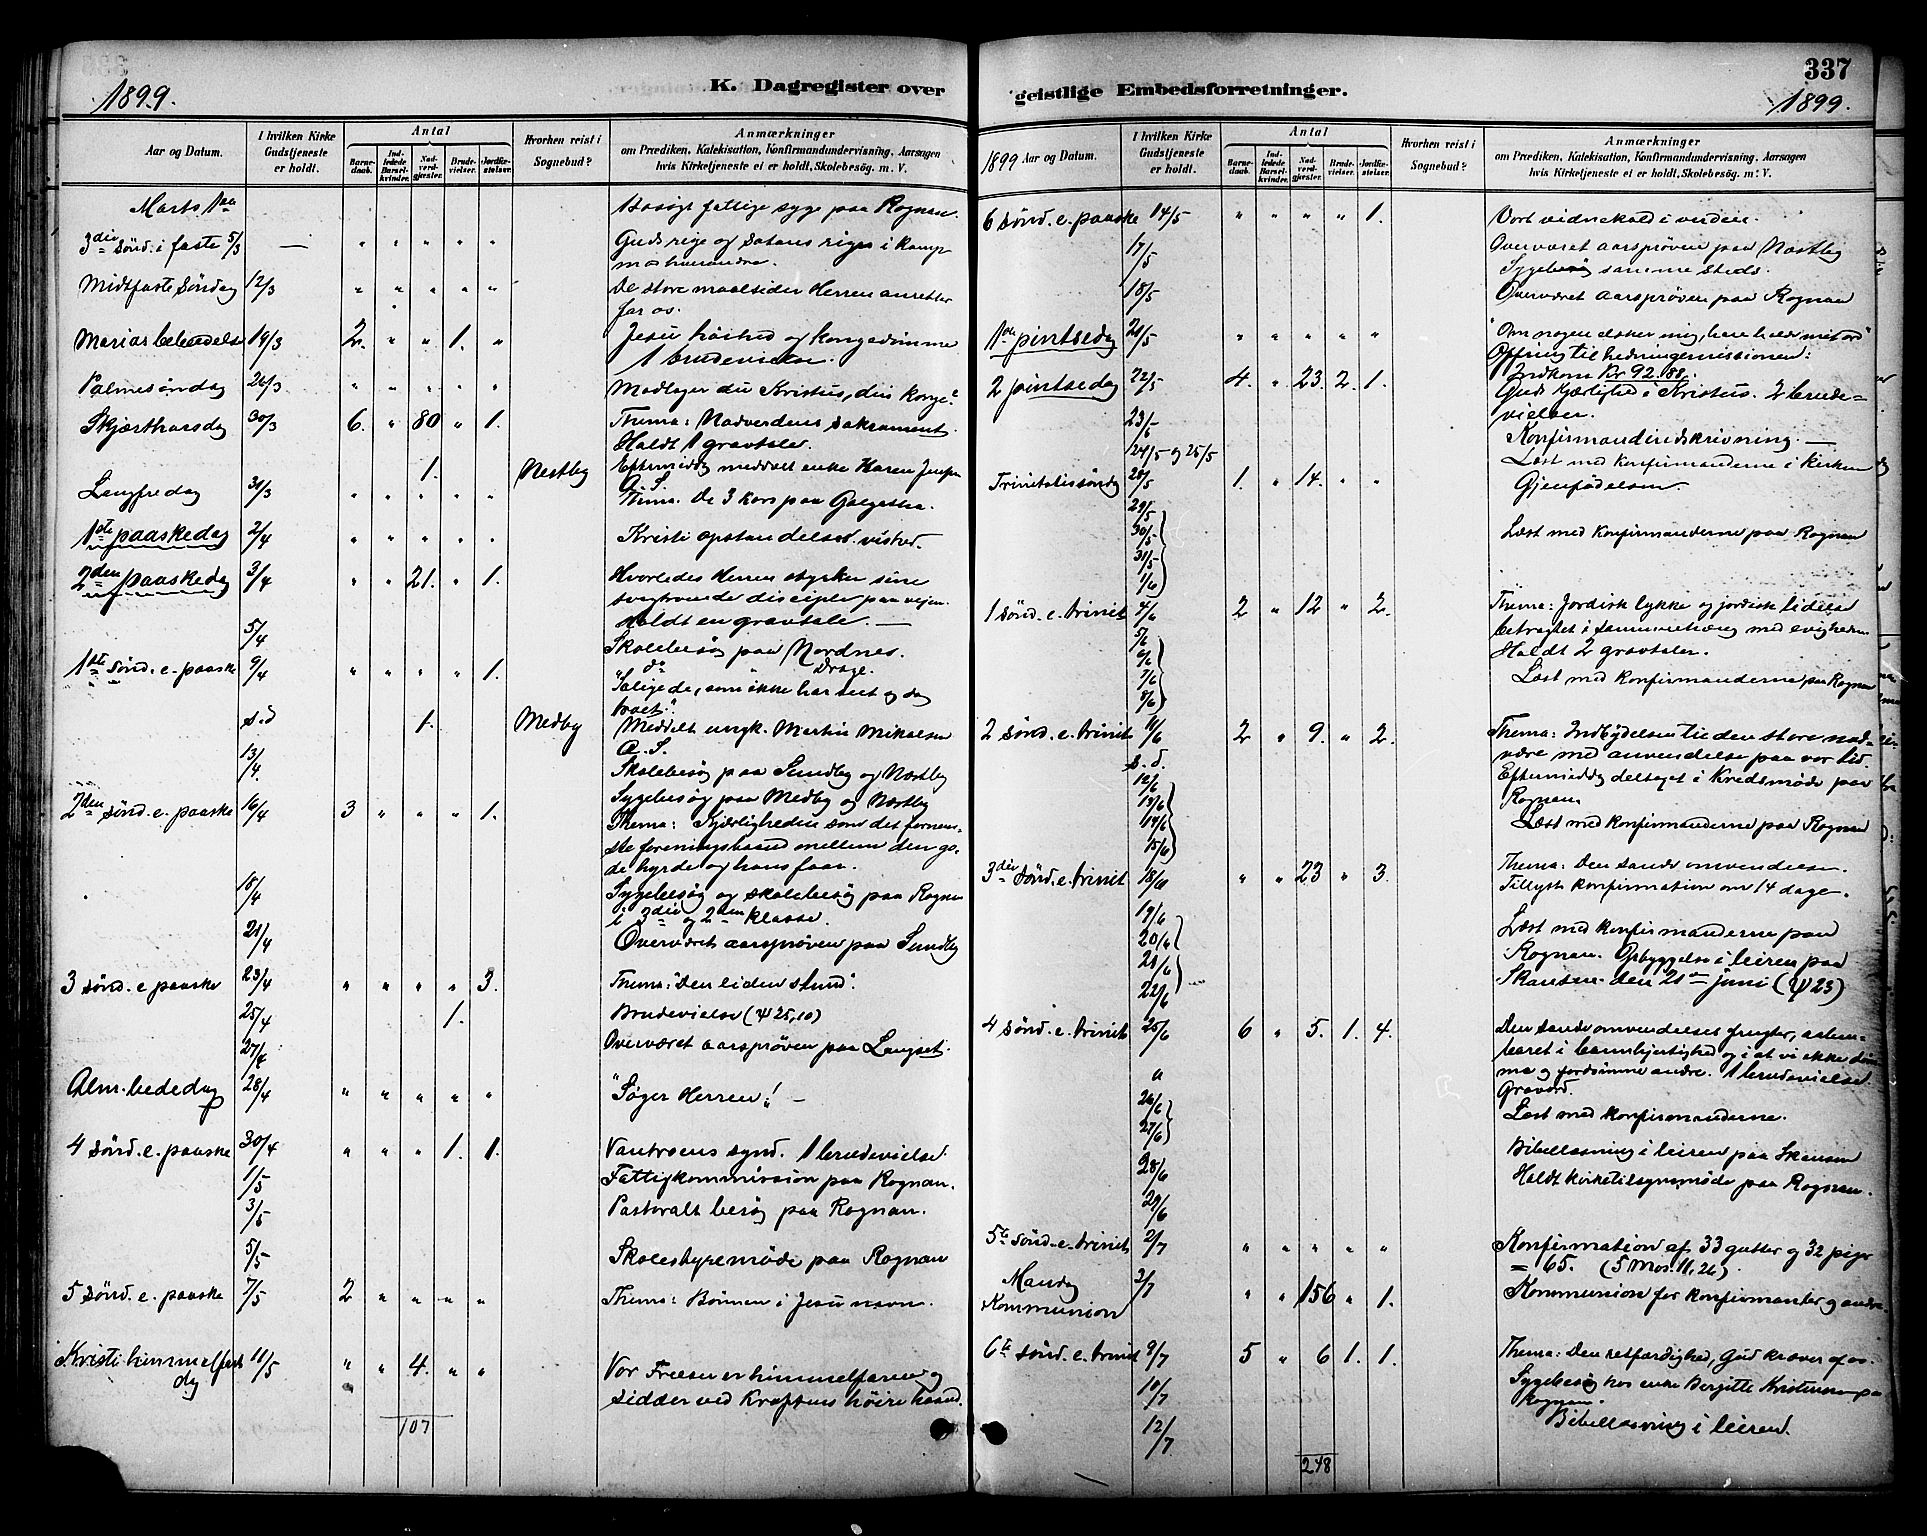 337
1899.
K. Dagregister over
geistlige Embedsforretninger.
1899.
Aar og Datum.
I hvilken Kirke Gudstjeneste er holdt.
Antal
Barnedaab.
Indledede Barselkvinder.
Nadverdgjæster.
Brudevielser.
Jordfæstelser.
Hvorhen reist i Sognebud?
Anmærkninger
om Prædiken, Katekisation, Konfirmandundervisning, Aarsagen
hvis Kirketjeneste ei er holdt, Skolebesøg. m. V.
Marts 1ste Besøgt fattige syge paa Rognan.
3die sønd. i faste 5/3 — " " " " " Guds rige og Satans rige i kamp
hverandre.
Midtfaste Søndag 12/3 " " " " " De store maaltider Herren anretter
for os.
Marias bebudelse 19/3 2. " " 1. " Jesu høihed og kongedømme
1 brudevielse.
Palmesøndag 26/3 " " " " " Modtager du Kristus, din konge?
Skjærthorsdag 30/3 6. " 80 " 1. Thema: Nadverdens sakrament.
Holdt 1 gravtale.
1. Nestby Eftermiddag meddelt enke Karen
A. S.
Langfredag 31/3 " " " " " Thema: De 3 kors paa Golgatha.
1ste paaskedag 2/4 " " " " " Kristi opstandelses vished.
2den paaskedag 3/4 " " 21. " 1. Hvorledes Herren styrker sine
svagtroende disciple paa veien.
Holdt en gravtale —
5/4 Skolebesøg paa Nordnes.
do Drage.
1ste sønd. e. paaske 9/4 " " " " 1. "Salige de, som ikke har seet og dog
troet".
s.d 1. Medby Meddelt ungk. Martin Mikalsen
A. S.
13/4. Skolebesøg paa Sundby og Næstby
Sygebesøg paa Medby og Næstby
2den sønd. e. paaske 16/4 3 " " " 1. Thema: Kjærligheden som det fornem-
ste foreningsbaand mellem den go-
de hyrde og hans faar.
18/4 Sygebesøg og skolebesøg paa Rognan
i 3die og 2den klasse.
21/4 Overværet aarsprøven paa Sundby
3 sønd. e paaske 23/4 " " " " 3. Thema: "Den liden stund".
25/4 1. Brudevielse (ψ 25,10)
27/4 Overværet aarsprøven paa Langset.
Alm. bededag 28/4 " " " " " "Søger Herren"! —
4 sønd. e. paaske 30/4 " " " 1. 1. Vantroens synd. 1 brudevielse.
1/5 Fattigkommission paa Rognan.
3/5 Pastoralt besøg paa Rognan.
5/5 Skolestyremøde paa Rognan
5 sønd. e. paaske 7/5 2 " " " " Thema: Bønnen i Jesu navn.
Kristi himmelfarts
dag 11/5 " " 4. " " Vor Frelser er himmelfaren og
sidder ved Kraftens høire haand.
107
1899 Aar og Datum.
I hvilken Kirke Gudstjeneste er holdt.
Antal
Barnedaab.
Indledede Barselkvinder.
Nadverdgjæster.
Brudevielser.
Jordfæstelser.
Hvorhen reist i Sognebud?
Anmærkninger
om Prædiken, Katekisation, Konfirmandundervisning, Aarsagen
hvis Kirketjeneste ei er holdt, Skolebesøg. m. V.
6 sønd. e. paaske 14/5 " " " " 1. Vort vidnekald i verden.
17/5 Overværet aarsprøven paa Næstby
Sygebesøg samme steds.
18/5 Overværet aarsprøven paa Rognan
1ste pintsedag 21/5 " " " " " "Om nogen elsker mig,
Offring til hedningemissionen:
Indkom Kr 92.88.
2 pintsedag 22/5 4. " 23. 2. 1. Guds kjærlighed i Kristus. 2 brude-
vielser.
23/5 Konfirmandindskrivning. —
24/5 og 25/5 Læst med konfirmanderne i kirken
Trinitatissøndag 28/5 1. " 14. " " Gjenfødelsen.
29/5
30/5 Læst med konfirmanderne paa Rognan
31/5
1/6
1 sønd. e. trinit 4/6 2 " 12 " 2. Thema: Jordisk lykke og jordisk lidelse
betragtet i sammenhæng med evigheden.
Holdt 2 gravtaler.
5/6
6/6 Læst med konfirmanderne paa Rognan
7/6
8/6
2 sønd. e. trinit 11/6 2 " 9. " 2. Thema: Indbydelsen til den store nad-
være med anvendelse paa vor tid.
s. d. Eftermiddag deltaget i kredsmøde paa
Rognan.
12/6
13/6 Læst med konfirmanderne paa Rognan
14/6
15/6
3die sønd. e. trinit 18/6 " " 23 " 3. Thema: Den sande omvendelse.
Tillyst konfirmation om 14 dage.
19/6 Læst med konfirmanderne paa
20/6 Rognan. Opbyggelse i leiren paa
21/6 Skansen den 21de juni (ψ 23)
22/6
4 sønd. e. trinit 25/6 6 " 5. 1. 4. Den sande omvendelses frugter, aaben-
baret i barmhjertighed og i at vi ikke døm-
me og fordømme andre. 1 brudevielse
Gravord.
26/6 Læst med konfirmanderne.
27/6
28/6 Bibellæsning i leiren paa Skansen
29/6 Holdt kirketilsynsmøde paa Rognan.
5te sønd. e. trinit 2/7 " " " " " Konfirmation af 33 gutter og 32 piger
= 65. (5 Mos. 11,26).
Mandag
Kommunion 3/7 " " 156 " 1. Kommunion for konfirmanter og andre.
6te sønd. e. trinit 9/7 5 " 6 1. 1. Thema: Den retfærdighed, Gud kræver af os.
10/7 Sygebesøg hos enke Bergitte Kristensen paa
Rognan.
12/7 Bibellæsning i leiren.
248